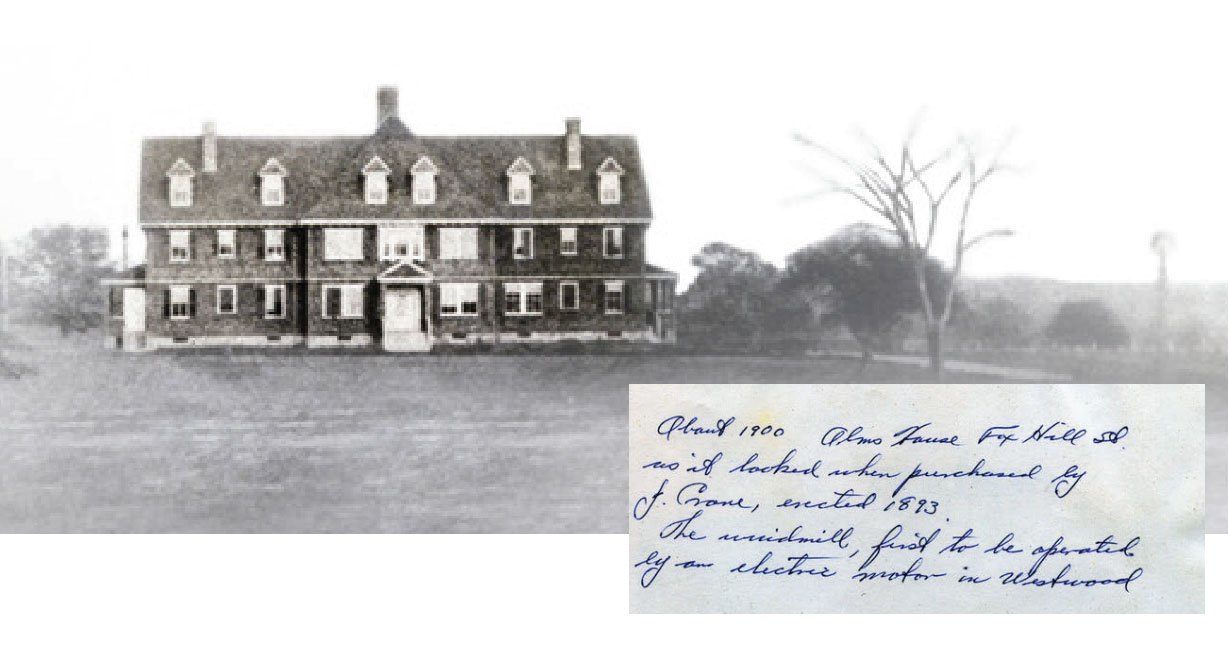 About 1900 Alms House Fox Hill St.
as it looked when purchased by
J. Crane, erected 1893
The windmill, first to be operated
by an electric motor in Westwood